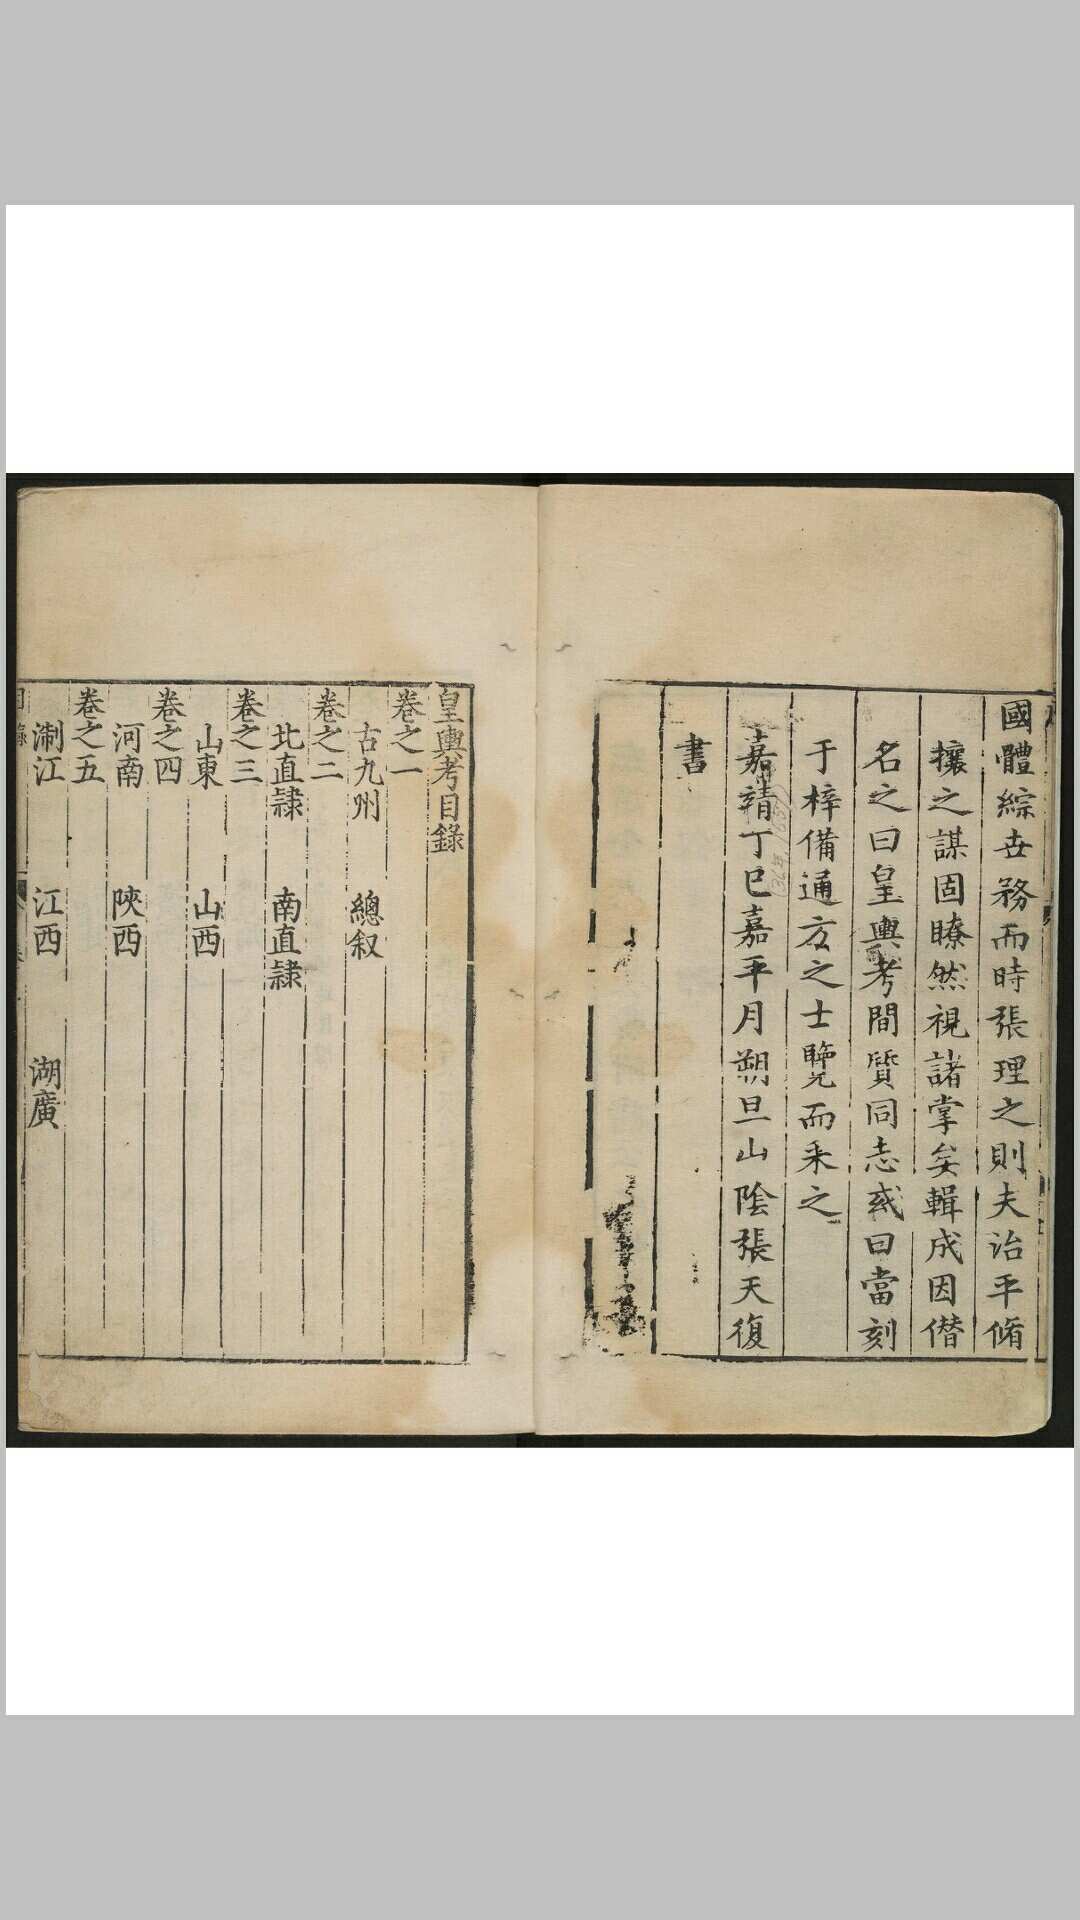 國體綜世務而時張理之則夫治平脩
攘之謀固瞭然視諸掌矣輯成因僣
名之曰皇輿考間質同志或曰當刻
于梓備通方之士覽而采之
嘉靖丁巳嘉平月朔旦山陰張天復
書
皇輿考目錄
卷之一
古九州 總叙
卷之二
北直隸 南直隸
卷之三
山東 山西
卷之四
河南 陝西
卷之五
淛江 江西 湖廣
目錄